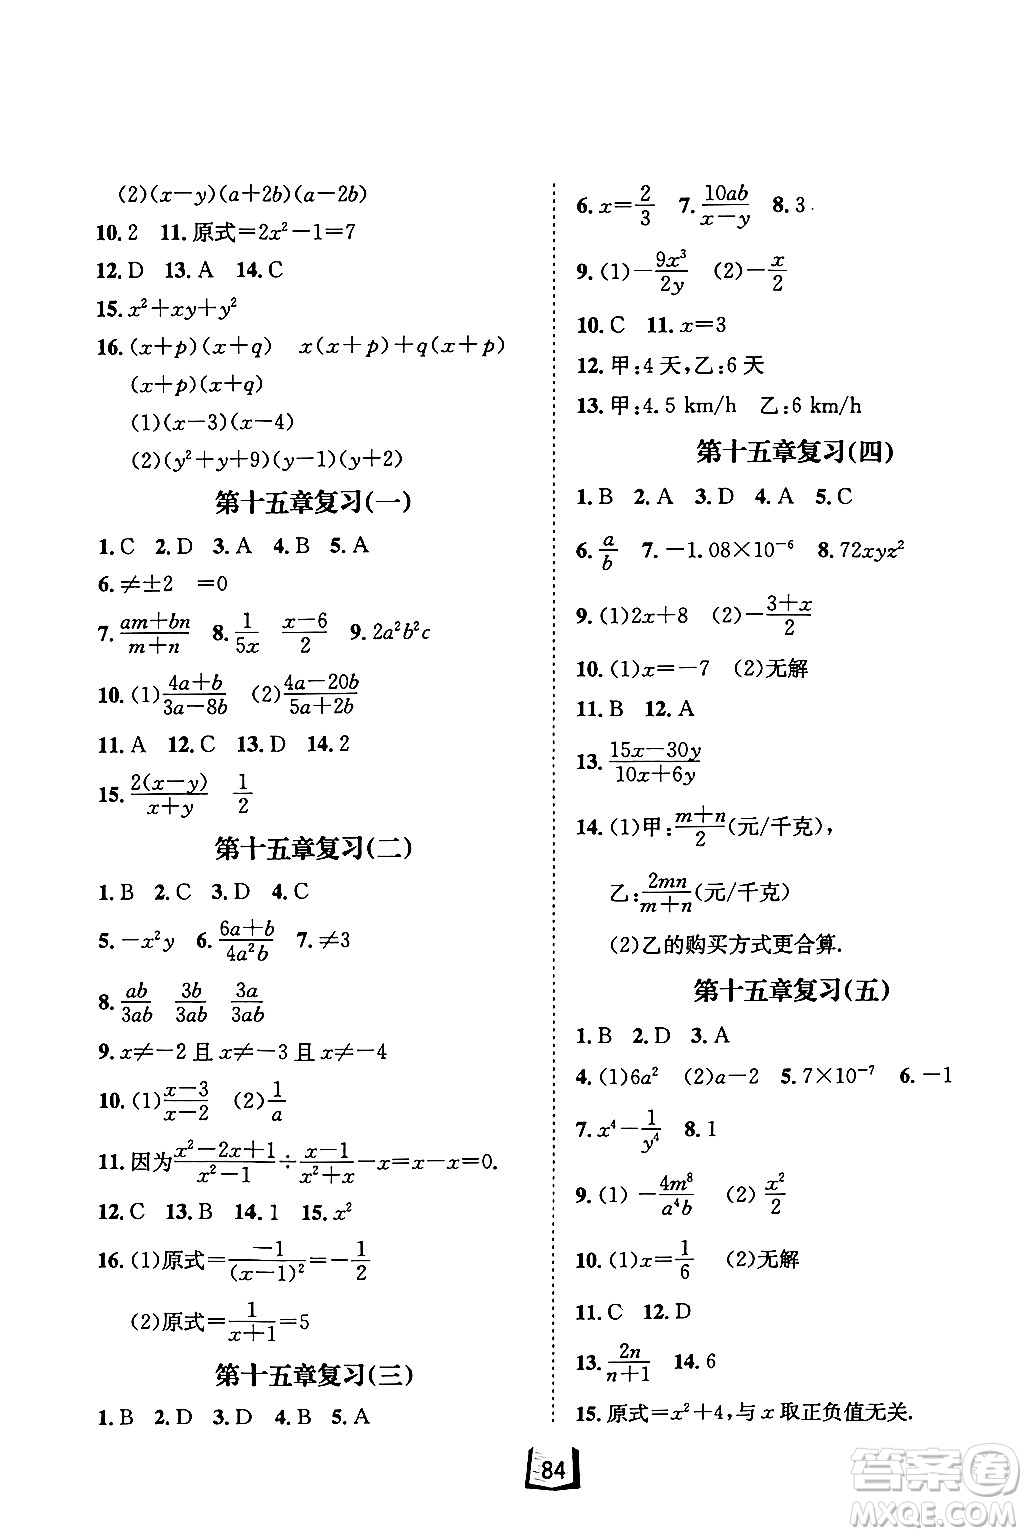 (2)(x－y)(a＋2b)(a－2b)
10. 2 11. 原式＝2x²－1＝7
12. D 13. A 14. C
15. x²＋xy＋y²
16. (x＋p)(x＋q) x(x＋p)＋q(x＋p)
(x＋p)(x＋q)
(1)(x－3)(x－4)
(2)(y²＋y＋9)(y－1)(y＋2)
第十五章复习(一)
1. C 2. D 3. A 4. B 5. A
6. ≠±2 ＝0
7. \frac{am＋bn}{m＋n} 8. \frac{1}{5x} \frac{x－6}{2} 9. 2a²b²c
10. (1)\frac{4a＋b}{3a－8b} (2)\frac{4a－20b}{5a＋2b}
11. A 12. C 13. D 14. 2
15. \frac{2(x－y)}{x＋y} \frac{1}{2}
第十五章复习(二)
1. B 2. C 3. D 4. C
5. －x²y 6. \frac{6a＋b}{4a²b} 7. ≠3
8. \frac{ab}{3ab} \frac{3b}{3ab} \frac{3a}{3ab}
9. x≠－2 且 x≠－3 且 x≠－4
10. (1)\frac{x－3}{x－2} (2)\frac{1}{a}
11. 因为\frac{x²－2x＋1}{x²－1}÷\frac{x－1}{x²＋x}－x＝x－x＝0.
12. C 13. B 14. 1 15. x²
16. (1)原式＝\frac{－1}{(x－1)²}＝－\frac{1}{2}
(2)原式＝\frac{1}{x＋1}＝5
第十五章复习(三)
1. B 2. D 3. D 4. B 5. A
6. x＝\frac{2}{3} 7. \frac{10ab}{x－y} 8. 3
9. (1)－\frac{9x³}{2y} (2)－\frac{x}{2}
10. C 11. x＝3
12. 甲:4 天,乙:6 天
13. 甲:4. 5 km/h 乙:6 km/h
第十五章复习(四)
1. B 2. A 3. D 4. A 5. C
6. \frac{a}{b} 7. －1. 08×10⁻⁶ 8. 72xyz²
9. (1)2x＋8 (2)－\frac{3＋x}{2}
10. (1)x＝－7 (2)无解
11. B 12. A
13. \frac{15x－30y}{10x＋6y}
14. (1)甲:\frac{m＋n}{2}(元/千克),
乙:\frac{2mn}{m＋n}(元/千克)
(2)乙的购买方式更合算.
第十五章复习(五)
1. B 2. D 3. A
4. (1)6a² (2)a－2 5. 7×10⁻⁷ 6. －1
7. x⁴－\frac{1}{y⁴} 8. 1
9. (1)－\frac{4m⁸}{a⁴b} (2)\frac{x²}{2}
10. (1)x＝\frac{1}{6} (2)无解
11. C 12. D
13. \frac{2n}{n＋1} 14. 6
15. 原式＝x²＋4,与 x 取正负值无关.
84
答案圈
MXQE.COM